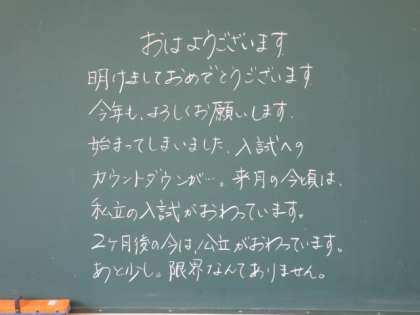 おはようございます
明けましておめでとうございます
今年も、よろしくお願いします.
始まってしまいました、入試への
カウントダウンが…。来月の今頃は、
私立の入試がおわっています。
2ヶ月後の今は、公立がおわっています。
あと少し。限界なんてありません。